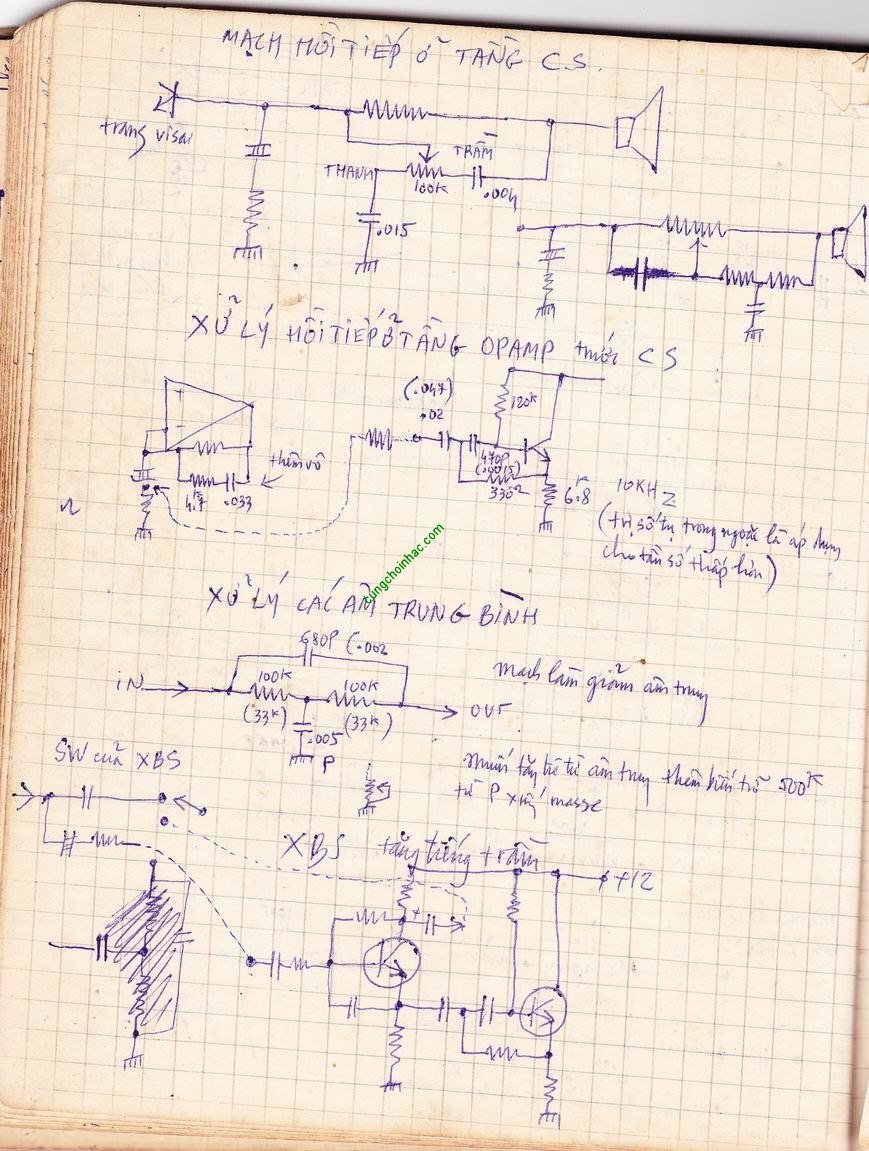 MẠCH HỒI TIẾP Ở TẦNG C.S.
TRẦM
THANH
100K
.004
.015
XỬ LÝ HỒI TIẾP Ở TẦNG OPAMP trước CS
(.047)
.02
120K
+
-
thêm vô
470P
(.0015)
4.7K
.033
330Ω
6.8K
10KHZ
(trị số tụ trong ngoặc là áp dụng
cho tần số thấp hơn)
cungchoinhac.com
XỬ LÝ CÁC ÂM TRUNG BÌNH
680P (.002
Mạch làm giảm âm trung
iN
100K
100K
OUT
(33K)
(33K)
.005
P
SW của XBS
500K
từ P xuống masse
XBS tăng tiếng trầm
+12
+